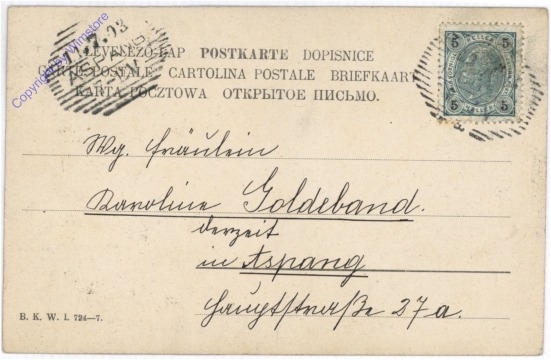 Copyright by Wmstore
7.03
LEVELEZŐ-LAP POSTKARTE DOPISNICE
CARTE POSTALE CARTOLINA POSTALE BRIEFKAART
KARTA POCZTOWA ОТКРЫТОЕ ПИСЬМО.
5 5
5 5
Wg. Fräulein
Karoline Goldeband.
derzeit
in Aspang
Hauptstraße 27a.
B. K. W. I. 724—7.